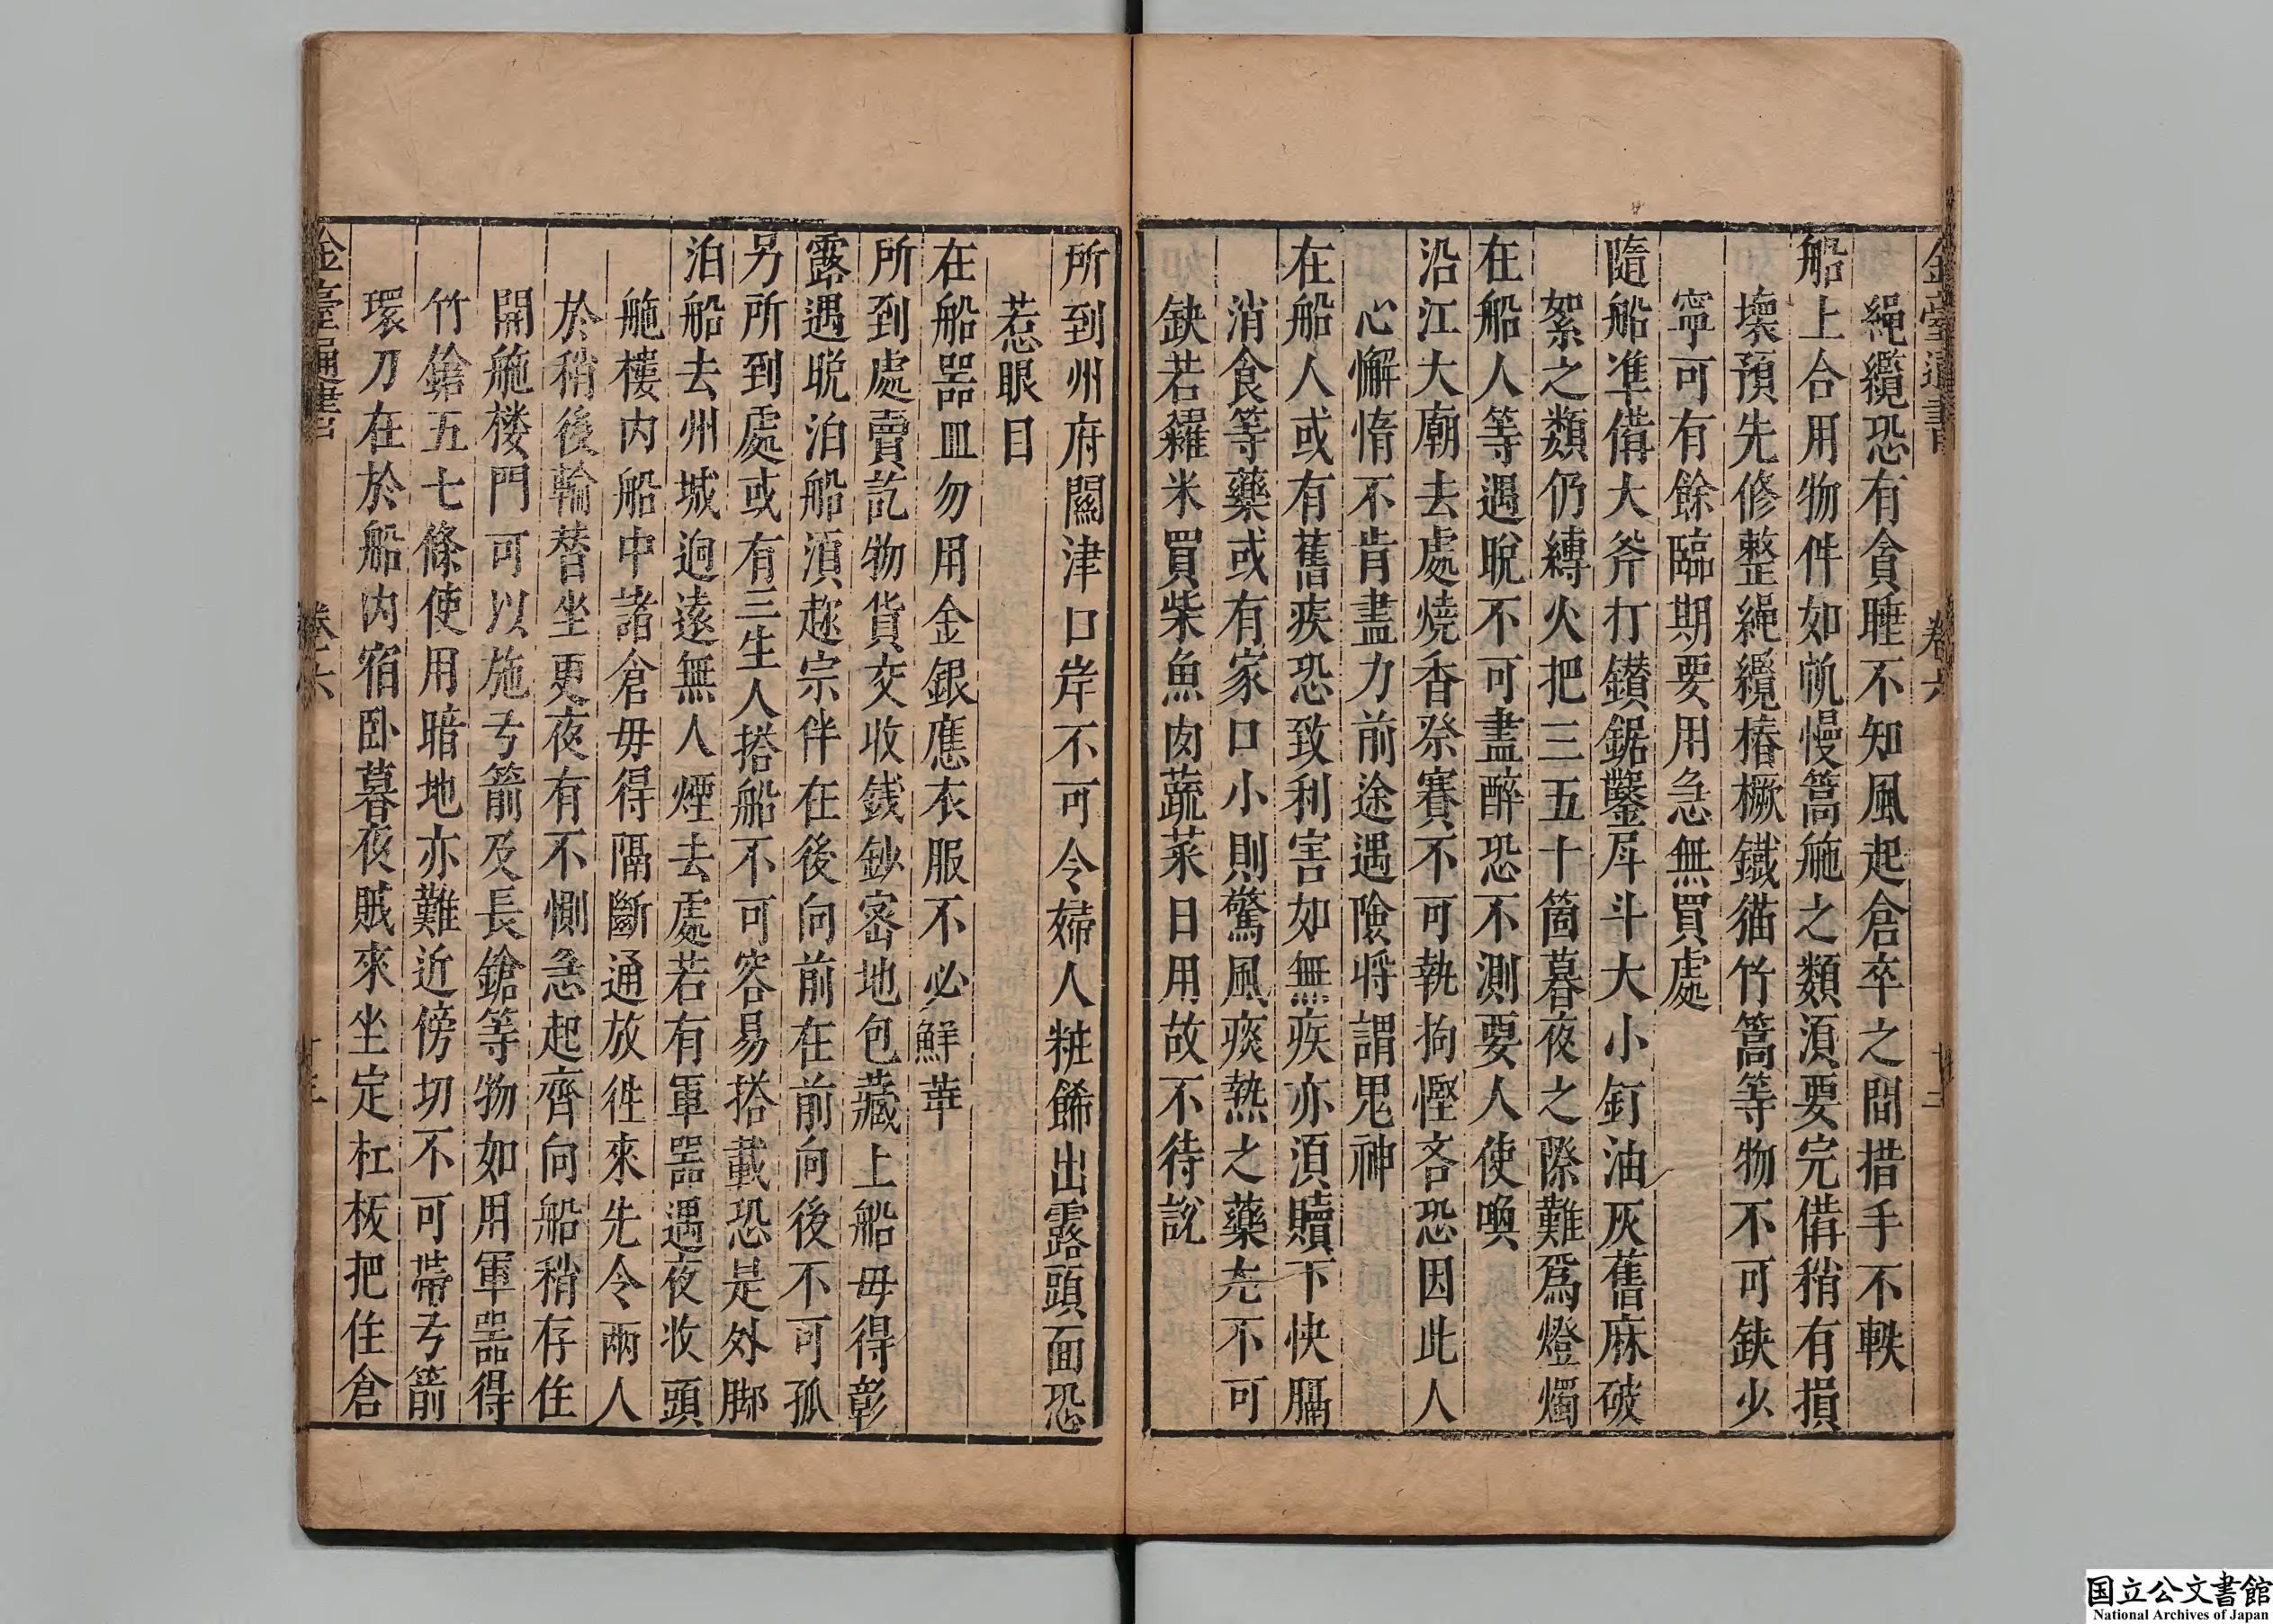 金臺通書 卷六
繩纜恐有貪睡不知風起倉卒之間措手不軼
船上合用物件如帆慢篙䑨之類湏要完俻稍有損
壞預先修整繩纜樁橛鐵猫竹篙等物不可缺少
寧可有餘臨期要用急無買處
隨船準俻大斧打鑚鋸鑿戽斗大小釘油灰舊麻破
絮之類仍縛火把三五十箇暮夜之際難爲燈燭
在船人等遇晚不可盡醉恐不測要人使喚
沿江大廟去處燒香祭賽不可執拘慳吝恐因此人
心懈惰不肯盡力前途遇險将謂鬼神
在船人或有舊疾恐致利害如無疾亦湏贖下快膈
消食等藥或有家口小則驚風痰熱之藥尤不可
缺若糴米買柴魚肉蔬菜日用故不待說
所到州府關津口岸不可令婦人粧餙出露頭面恐
惹眼目
在船噐皿勿用金銀應衣服不必鮮華
所到處賣訖物貨交收銭鈔宻地包藏上船毋得彰
露遇晩泊船湏趂宗伴在後向前在前向後不可孤
另所到處或有三生人搭船不可容易搭載恐是外脚
泊船去州城逈遠無人煙去處若有軍噐遇夜收頭
䑨樓内船中諸倉毋得隔斷通放徃來先令兩人
於稍後輪替坐更夜有不惻急起齊向船稍存住
開䑨楼門可以施弓箭及長鎗等物如用軍噐得
竹鎗五七條使用暗地亦難近傍切不可帶弓箭
環刀在於船内宿卧暮夜賊來坐定杠板把住倉
金臺通書 卷六